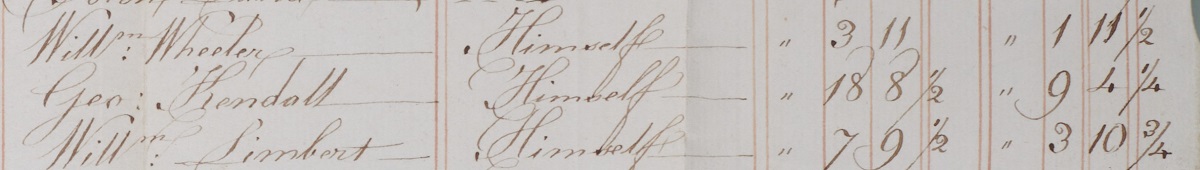 Will^m: Wheeler Himself " 3 11 " 1 11 1/2
Geo: Kendall Himself " 18 8 1/2 " 9 4 1/4
Will^m: Limbert Himself " 7 9 1/2 " 3 10 3/4